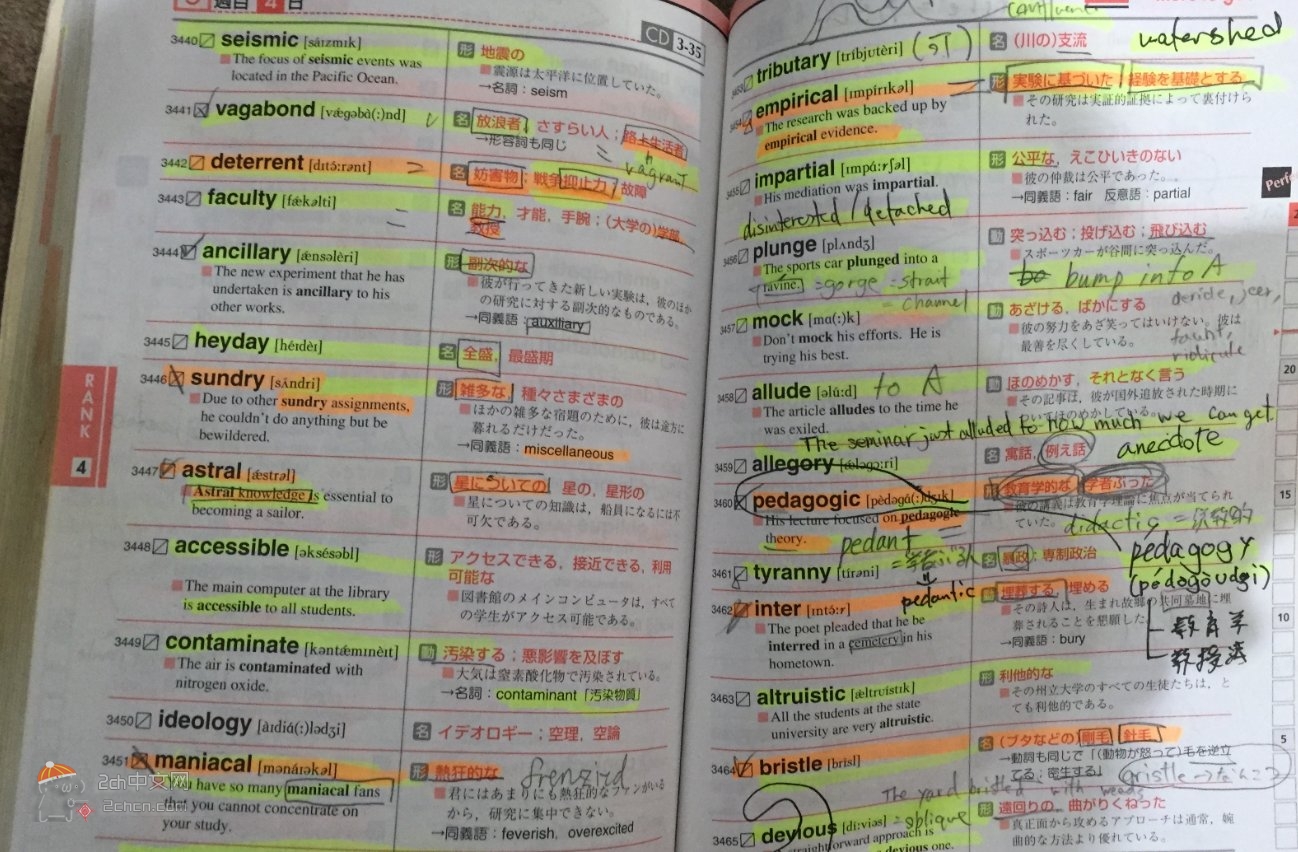 週目 4 日
CD 3-35
3440 seismic [sáɪzmɪk]
The focus of seismic events was
located in the Pacific Ocean.
形 地震の
震源は太平洋に位置していた。
→名詞：seism
3441 vagabond [vǽgəbà(:)nd]
名 放浪者，さすらい人；路上生活者
→形容詞も同じ
vagrant
3442 deterrent [dɪtə́:rənt]
名 妨害物；戦争抑止力，故障
3443 faculty [fǽkəlti]
名 能力，才能，手腕；(大学の)学部，
教授
3444 ancillary [ǽnsəlèri]
The new experiment that he has
undertaken is ancillary to his
other works.
形 副次的な
彼が行ってきた新しい実験は，彼のほか
の研究に対する副次的なものである。
→同義語：auxiliary
3445 heyday [héɪdèɪ]
名 全盛，最盛期
3446 sundry [sʌ́ndri]
Due to other sundry assignments,
he couldn't do anything but be
bewildered.
形 雑多な，種々さまざまの
ほかの雑多な宿題のために，彼は途方に
暮れるだけだった。
→同義語：miscellaneous
RANK
4
3447 astral [ǽstrəl]
Astral knowledge is essential to
becoming a sailor.
形 星についての，星の，星形の
星についての知識は，船員になるには不
可欠である。
3448 accessible [əksésəbl]
The main computer at the library
is accessible to all students.
形 アクセスできる，接近できる，利用
可能な
図書館のメインコンピュータは，すべて
の学生がアクセス可能である。
3449 contaminate [kəntǽmɪnèɪt]
The air is contaminated with
nitrogen oxide.
動 汚染する；悪影響を及ぼす
大気は窒素酸化物で汚染されている。
→名詞：contaminant「汚染物質」
3450 ideology [àɪdiá(:)lədʒi]
名 イデオロギー；空理，空論
3451 maniacal [mənáɪəkəl]
You have so many maniacal fans
that you cannot concentrate on
your study.
形 熱狂的な
君にはあまりにも熱狂的なファンがいる
から，研究に集中できない。
→同義語：feverish，overexcited
2ch中文网
2chcn.com
3453 tributary [tríbjʊtèri]
名 (川の)支流
watershed
3454 empirical [ɪmpírɪkəl]
The research was backed up by
empirical evidence.
形 実験に基づいた，経験を基礎とする
その研究は実証的証拠によって裏付けら
れた。
3455 impartial [ɪmpá:rʃəl]
His mediation was impartial.
disinterested / detached
形 公平な，えこひいきのない
彼の仲裁は公平であった。
→同義語：fair 反意語：partial
3456 plunge [plʌndʒ]
The sports car plunged into a
ravine. =gorge =strait
= channel
動 突っ込む；投げ込む；飛び込む
スポーツカーが谷間に突っ込んだ。
bump into A
3457 mock [mɑ(:)k]
Don't mock his efforts. He is
trying his best.
動 あざける，ばかにする
彼の努力をあざ笑ってはいけない。彼は
最善を尽くしている。
deride, jeer,
taunt,
ridicule
3458 allude [əlú:d] to A
The article alludes to the time he
was exiled.
動 ほのめかす，それとなく言う
その記事は，彼が国外追放された時期に
ついてほのめかしている。
The seminar just alluded to how much we can get
3459 allegory [ǽləgɔ̀:ri]
名 寓話，例え話
anecdote
3460 pedagogic [pèdəgá(:)dʒɪk]
His lecture focused on pedagogic
theory.
pedant
pedantic
形 教育学的な，学者ぶった
彼の講義は教育学理論に焦点が当てられ
ていた。
pedagogy
教育学
教授法
3461 tyranny [tírəni]
名 暴政；専制政治
3462 inter [ɪntə́:r]
The poet pleaded that he be
interred in a cemetery in his
hometown.
動 埋葬する，埋める
その詩人は，生まれ故郷の共同墓地に埋
葬されることを懇願した。
→同義語：bury
3463 altruistic [æ̀ltruístɪk]
All the students at the state
university are very altruistic.
形 利他的な
その州立大学のすべての生徒たちは，と
ても利他的である。
3464 bristle [brísl]
名 (ブタなどの)剛毛，針毛，
→動詞も同じで「(動物が怒って)毛を逆立
てる；密生する」
The yard bristled with weeds
3465 devious [dí:viəs] =oblique
形 遠回りの，曲がりくねった
真正面から攻めるアプローチは通常，婉
曲的な方法より優れている。
20
15
10
5